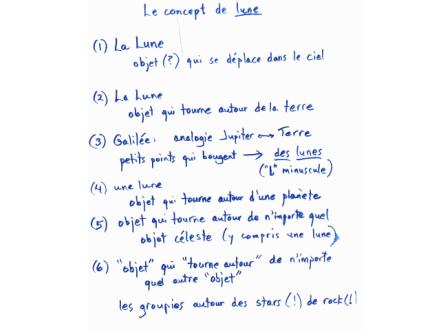 Le concept de lune
(1) La Lune
objet (?) qui se déplace dans le ciel
(2) La Lune
objet qui tourne autour de la terre
(3) Galilée: analogie Jupiter ↔ Terre
petits points qui bougent → des lunes
("L" minuscule)
(4) une lune
objet qui tourne autour d'une planète
(5) objet qui tourne autour de n'importe quel
objet céleste (y compris une lune)
(6) "objet" qui "tourne autour" de n'importe
quel autre "objet"
les groupies autour des stars (!) de rock (!)